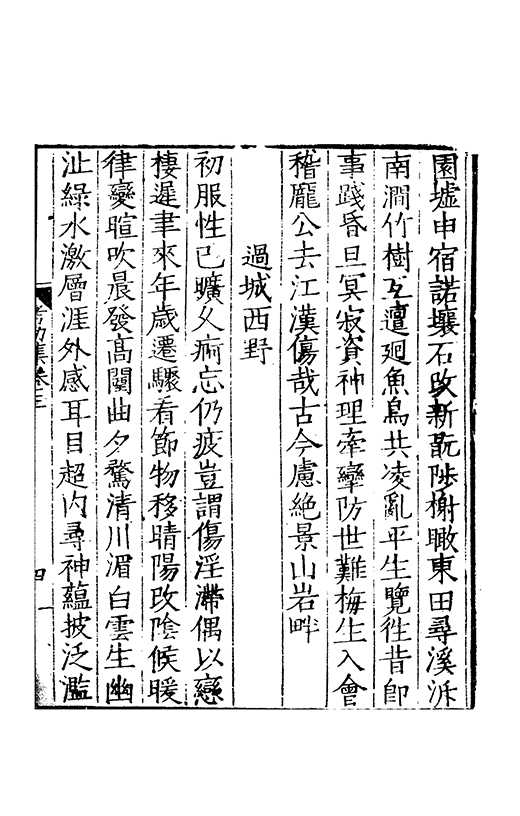 園墟申宿諾壤石改新翫陟榭瞰東田尋溪泝
南澗竹樹互邅廻魚鳥共凌亂平生覽徃昔卽
事踐昏旦冥寂資神理牽攣防世難梅生入會
稽龐公去江漢傷哉古今慮絶景山岩畔
過城西野
初服性已曠久痾忘仍疲豈謂傷淫滯偶以戀
棲遲聿來年歲遷驟看節物移晴陽改陰候暖
律變暄吹晨發高闉曲夕騖清川湄白雲生幽
沚綠水激層涯外感耳目超内尋神藴披泛濫
考功集卷三
四